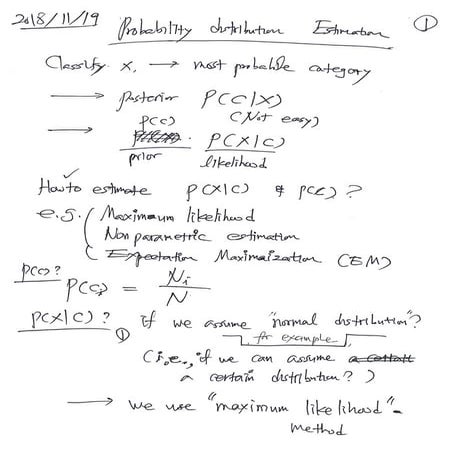 2018/11/19 Probability distribution Estimation ①
Classify x, → most probable category
→ posterior P(C|X)
P(C) (Not easy)
→ P(X|C)
prior likelihood
How to estimate P(X|C) & P(C)?
e.g. ( Maximum likelihood
Non parametric estimation
Expectation Maximaization (EM)
P(C)? P(Ci) = Ni / N
P(X|C)? ① If we assume "normal distribution"?
for example
(i.e., if we can assume
a certain distribution?)
→ we use "maximum likelihood"-
method